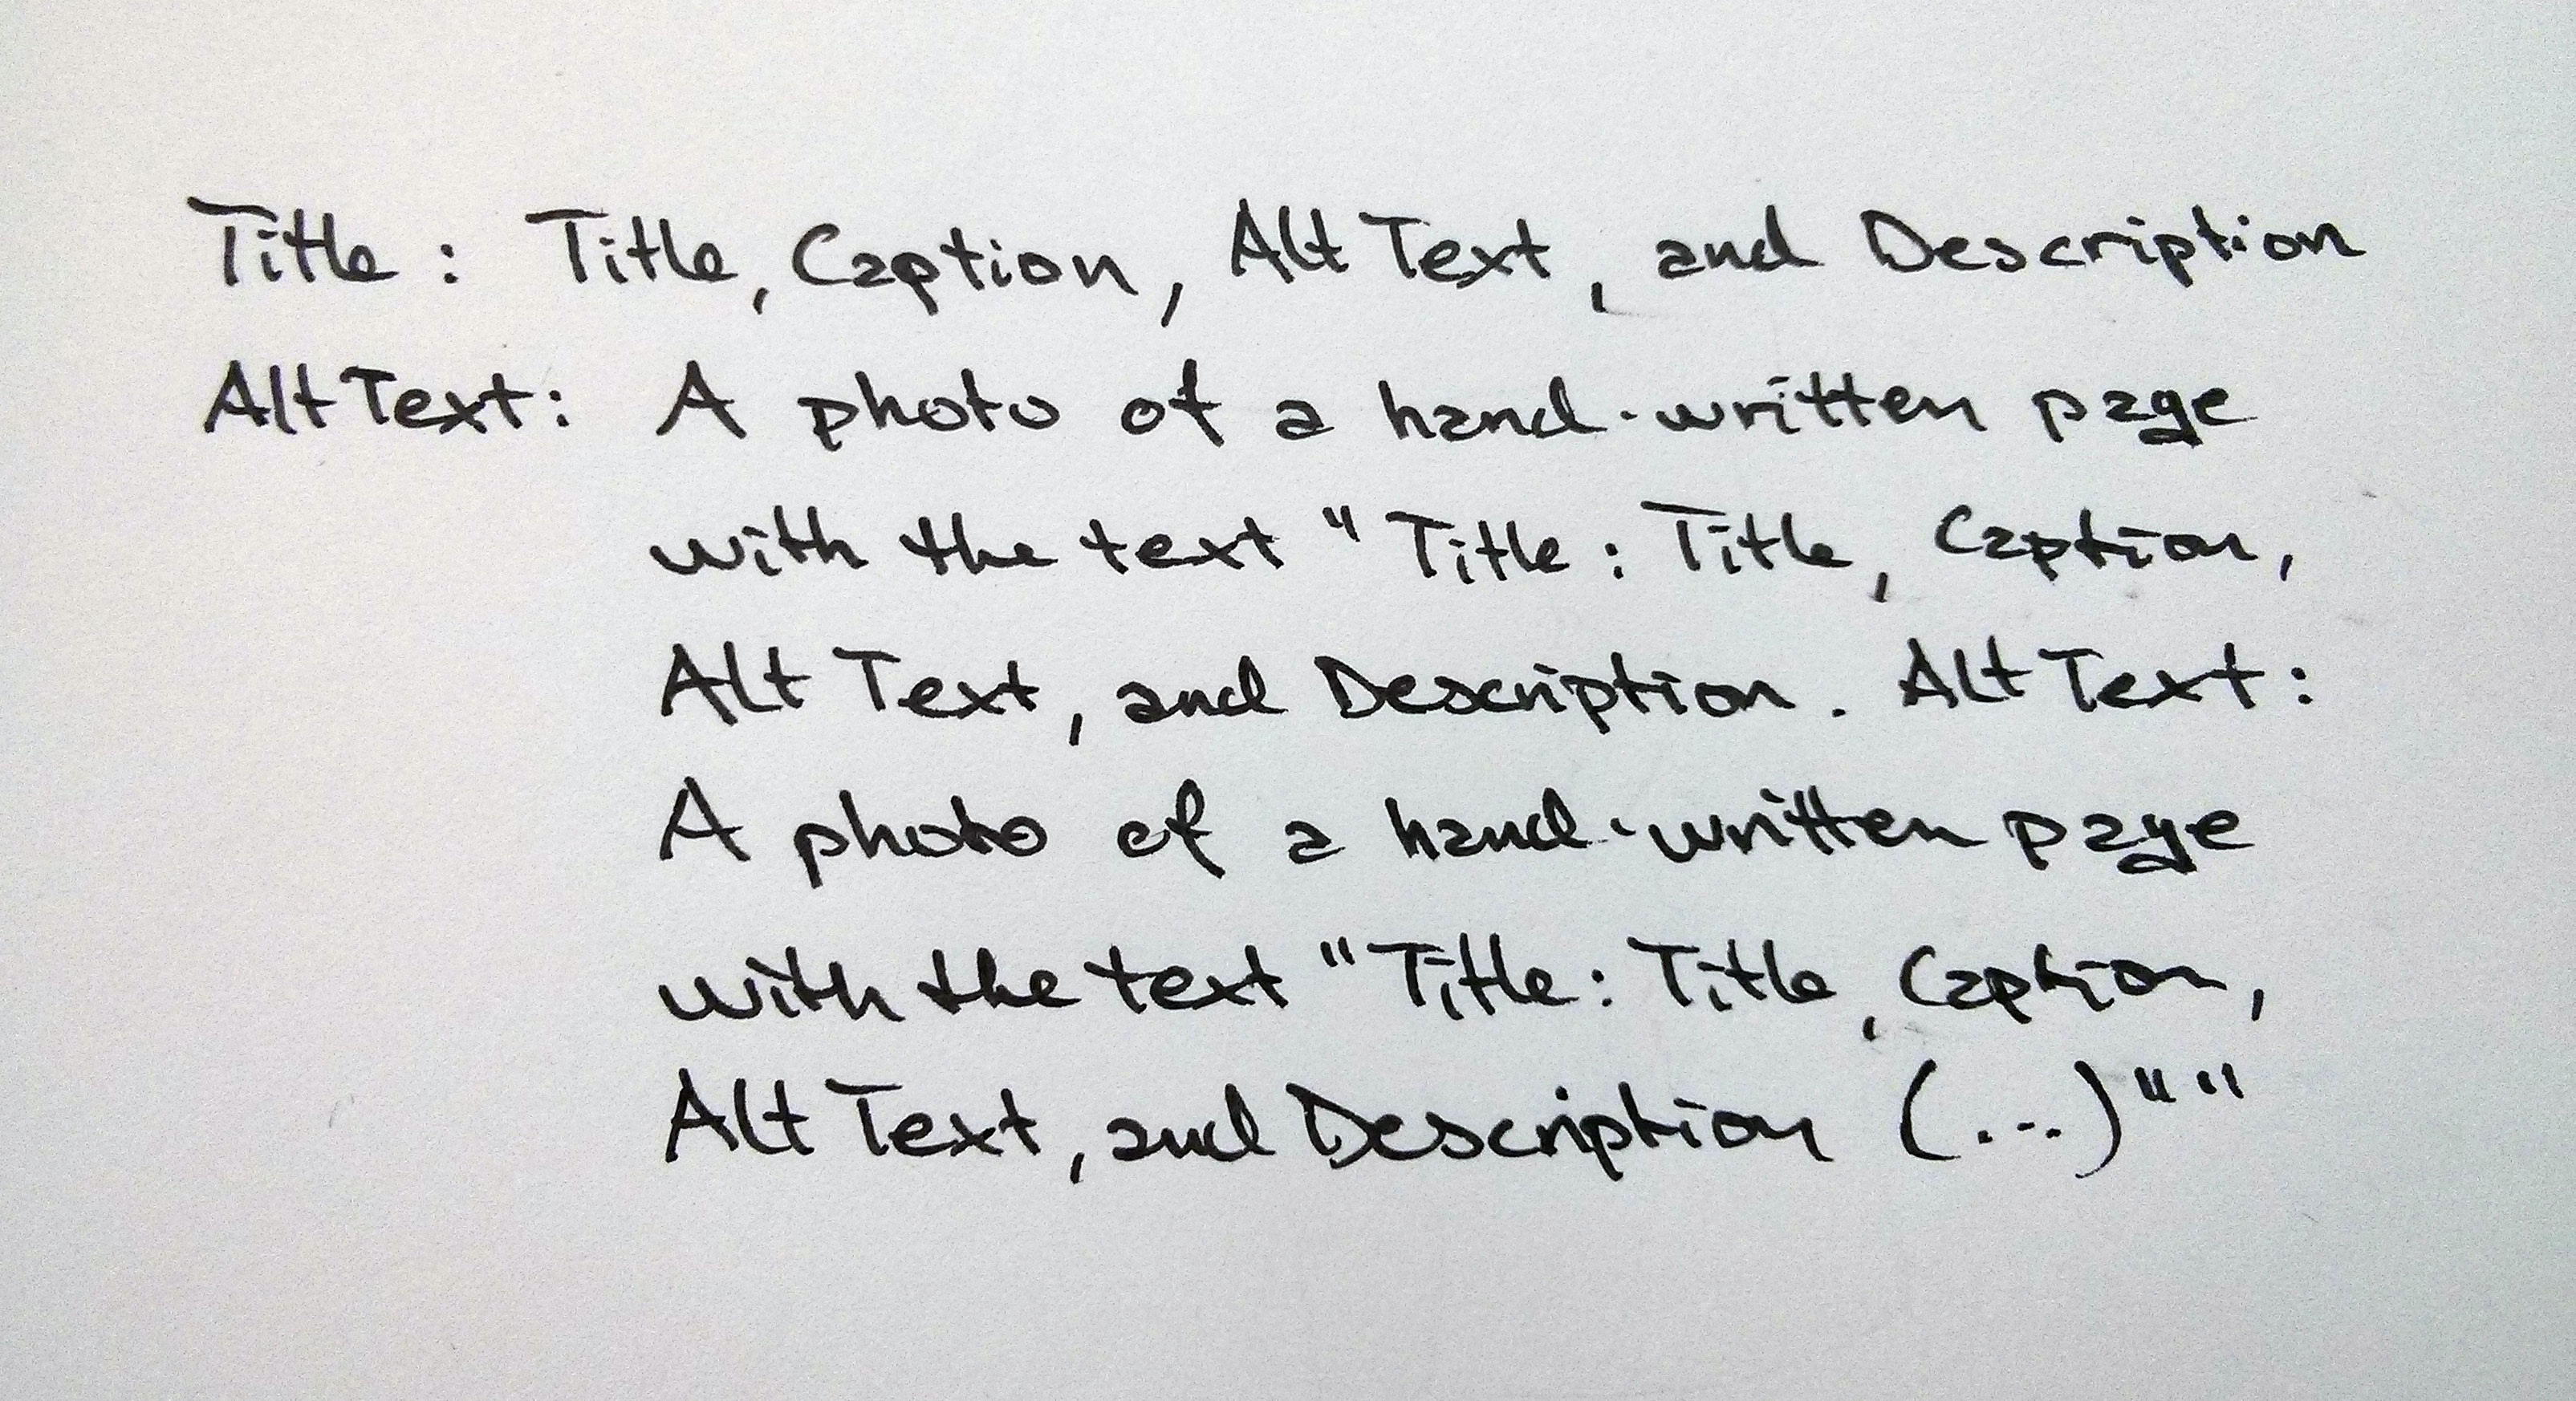 Title: Title, Caption, Alt Text, and Description
Alt Text: A photo of a hand-written page
with the text "Title: Title, Caption,
Alt Text, and Description. Alt Text:
A photo of a hand-written page
with the text "Title: Title, Caption,
Alt Text, and Description (...)""